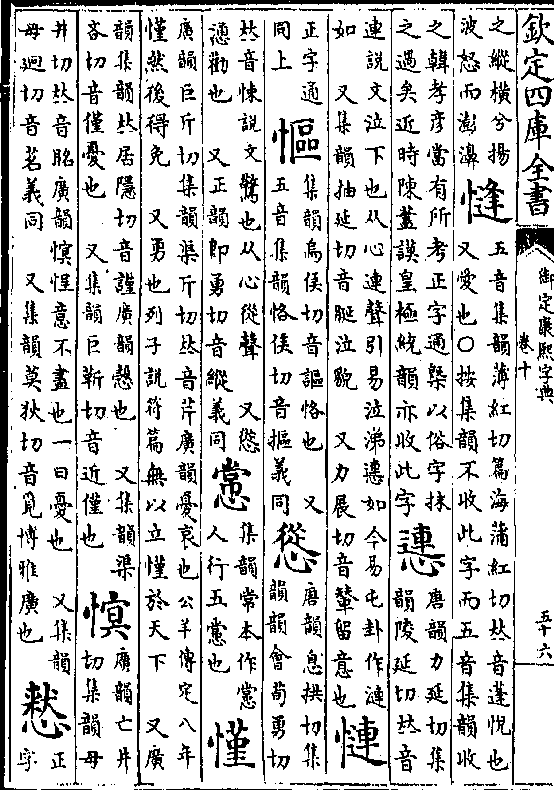 欽定四庫全書
御定康熙字典
卷十
五十六
之縱橫兮揚
波怒而澎濞
五音集韻薄紅切篇海蒲紅切𠀤音蓬悅也
又愛也○按集韻不收此字而五音集韻收
之韓孝彥當有所考正字通槩以俗字抹
之過矣近時陳藎謨皇極統韻亦收此字
唐韻力延切集
韻陵延切𠀤音
連說文泣下也从心連聲引易泣涕如今易屯卦作漣
如 又集韻抽延切音脠泣貌 又力展切音輦留意也
慩
正字通
同上
慪
集韻烏侯切音謳恪也 又
五音集韻恪侯切音摳義同
慫
唐韻息拱切集
韻韻會筍勇切
𠀤音悚說文驚也从心從聲 又慫
慂勸也 又正韻即勇切音縱義同
集韻常本作
人行五也
慬
廣韻巨斤切集韻渠斤切𠀤音芹廣韻憂哀也公羊傳定八年
慬然後得免 又勇也列子說符篇無以立慬於天下 又廣
韻集韻𠀤居隱切音謹廣韻慤也 又集韻渠
吝切音僅憂也 又集韻巨靳切音近僅也
慏
廣韻亡井
切集韻母
井切𠀤音廣韻慏悜意不盡也一曰憂也 又集韻
母迥切音茗義同 又集韻莫狄切音覓博雅廣也
正
字